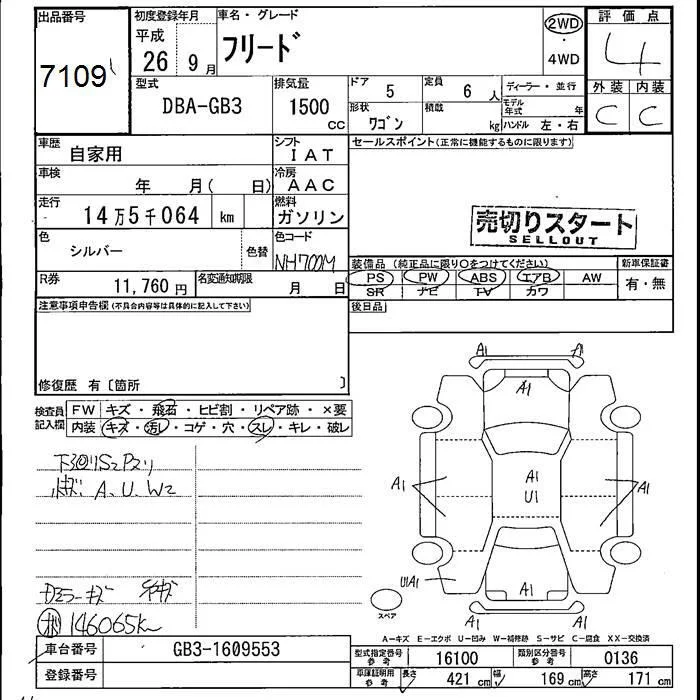 出品番号
7109
初度登録年月
平成
26 9月
車名・グレード
フリード
2WD
・
4WD
評価点
4
外装 内装
C C
型式
DBA-GB3
排気量
1500
CC
ドア
5
定員
6 人
形状
ワゴン
積載
kg
ディーラー・並行
モデル
年式
年
ハンドル 左・右
車歴
自家用
シフト
IAT
車検
年 月( 日)
冷房
AAC
走行
14万5千064 km
燃料
ガソリン
色
シルバー
色替
色コード
NH700M
R券
11,760円
名変通知期限
月 日
セールスポイント(正常に機能するものに限ります)
売切りスタート
SELLOUT
装備品(純正品に限り○をつけてください)
PS PW ABS エアB AW
SR ナビ TV カワ
新車保証書
有・無
後日品
注意事項申告欄(不具合内容等は具体的に記入して下さい)
修復歴 有〔箇所 〕
検査員
記入欄
FW キズ・飛石・ヒビ割・リペア跡・×要
内装 キズ・汚レ・コゲ・穴・スレ・キレ・破レ
A、U、W2
146065K
A1 A1
A1
A1
U1
A1 A1
U1A1
A1
A1
スペア
A-キズ E-エクボ U-凹み W-補修跡 S-サビ C-腐食 XX-交換済
車台番号
GB3-1609553
登録番号
型式指定番号
参考
16100
類別区分番号
参考
0136
車庫証明用
参考
長さ
421 cm
幅
169 cm
高さ
171 cm